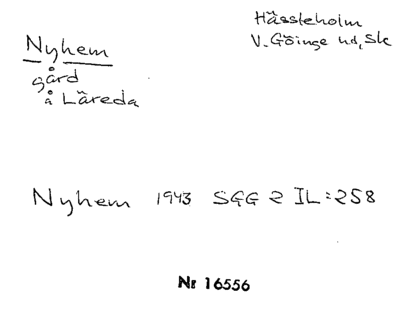 Hässleholm
V. Göinge hd, Sk
Nyhem
gård
å Läreda
Nyhem 1943 SGG 2 IL:258
Nr 16556